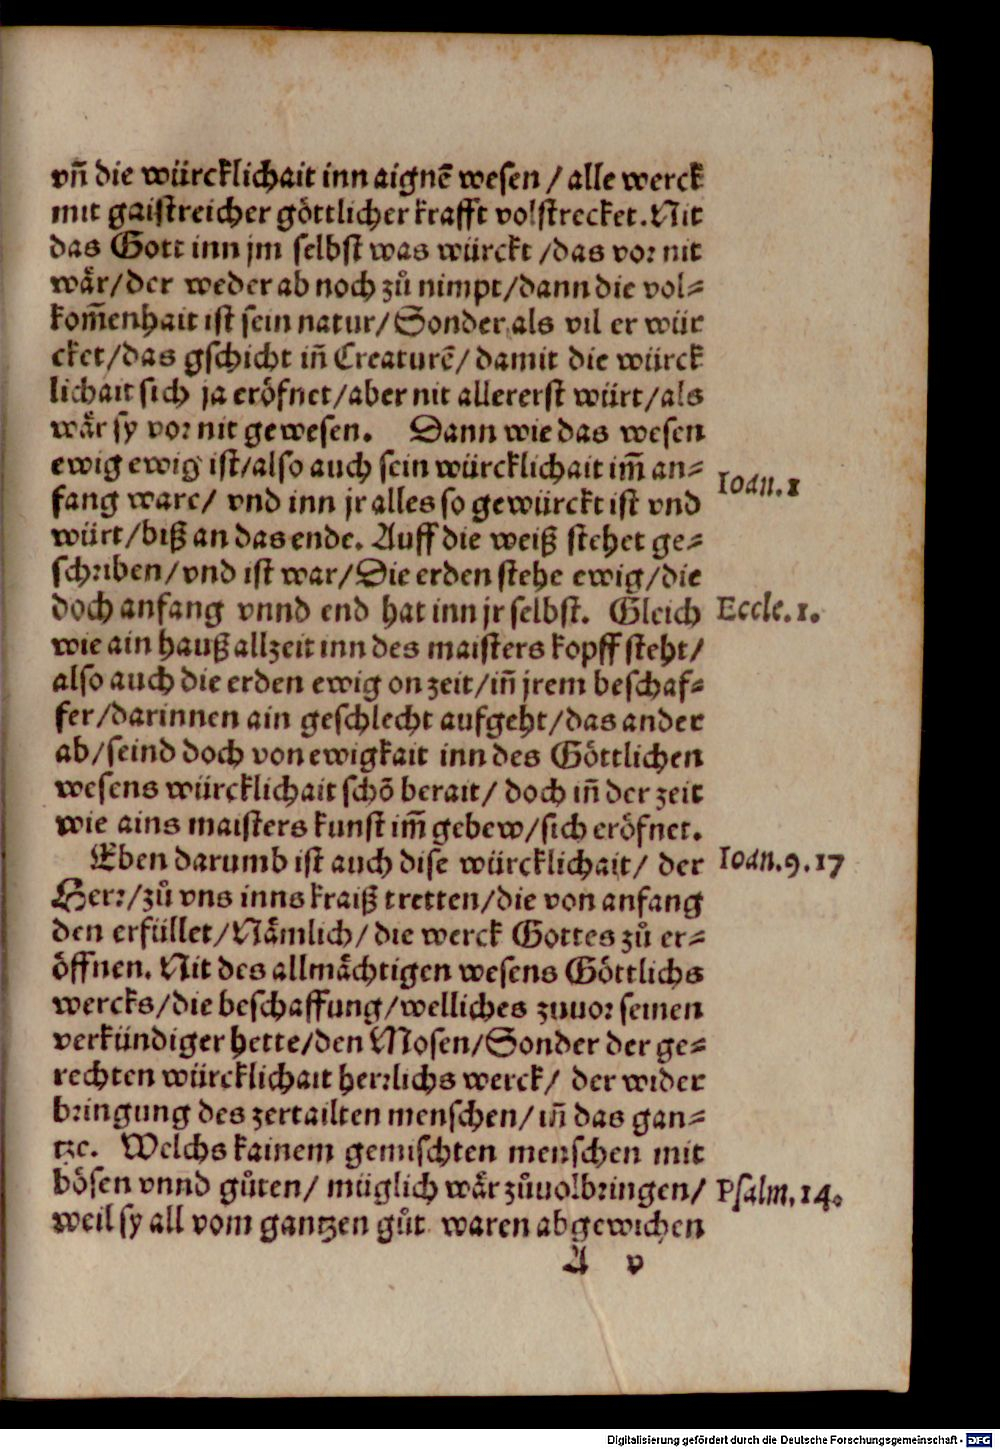 vñ die würcklichait inn aignẽ wesen / alle werck
mit gaistreicher göttlicher krafft volstrecket. Nit
das Gott inn jm selbst was würckt /das vor nit
wår/der weder ab noch zů nimpt/dann die vol⸗
kom̃enhait ist sein natur/Sonder als vil er wür
cket/das gschicht iñ Creaturẽ/damit die würck
lichait sich ja eröfnet/aber nit allererst würt/als
wår sy vor nit gewesen. Dann wie das wesen
ewig ewig ist/also auch sein würcklichait im̃ an⸗
fang ware/ vnd inn jr alles so gewürckt ist vnd
Ioan.1
würt/biß an das ende. Auff die weiß stehet ge⸗
schriben/vnd ist war/Die erden stehe ewig/die
doch anfang vnnd end hat inn jr selbst. Gleich
Eccle.1.
wie ain hauß allzeit inn des maisters kopff steht/
also auch die erden ewig on zeit/iñ jrem beschaf⸗
fer/darinnen ain geschlecht aufgeht/das ander
ab/seind doch von ewigkait inn des Göttlichen
wesens würcklichait schõ berait/ doch iñ der zeit
wie ains maisters kunst im̃ gebew/sich eröfnet.
Eben darumb ist auch dise würcklichait/ der
Ioan.9.17
Herr/zů vns inns kraiß tretten/die von anfang
den erfüllet/Nåmlich/die werck Gottes zů er⸗
öffnen. Nit des allmåchtigen wesens Göttlichs
wercks/die beschaffung/welliches zuuor seinen
verkündiger hette/den Mosen/Sonder der ge⸗
rechten würcklichait herrlichs werck/ der wider
bringung des zertailten menschen/iñ das gan⸗
tze. Welchs kainem gemischten menschen mit
bösen vnnd gůten/ müglich wår zůuolbringen/
Psalm.14.
weil sy all vom gantzen gůt waren abgewichen
A v
Digitalisierung gefördert durch die Deutsche Forschungsgemeinschaft - DFG